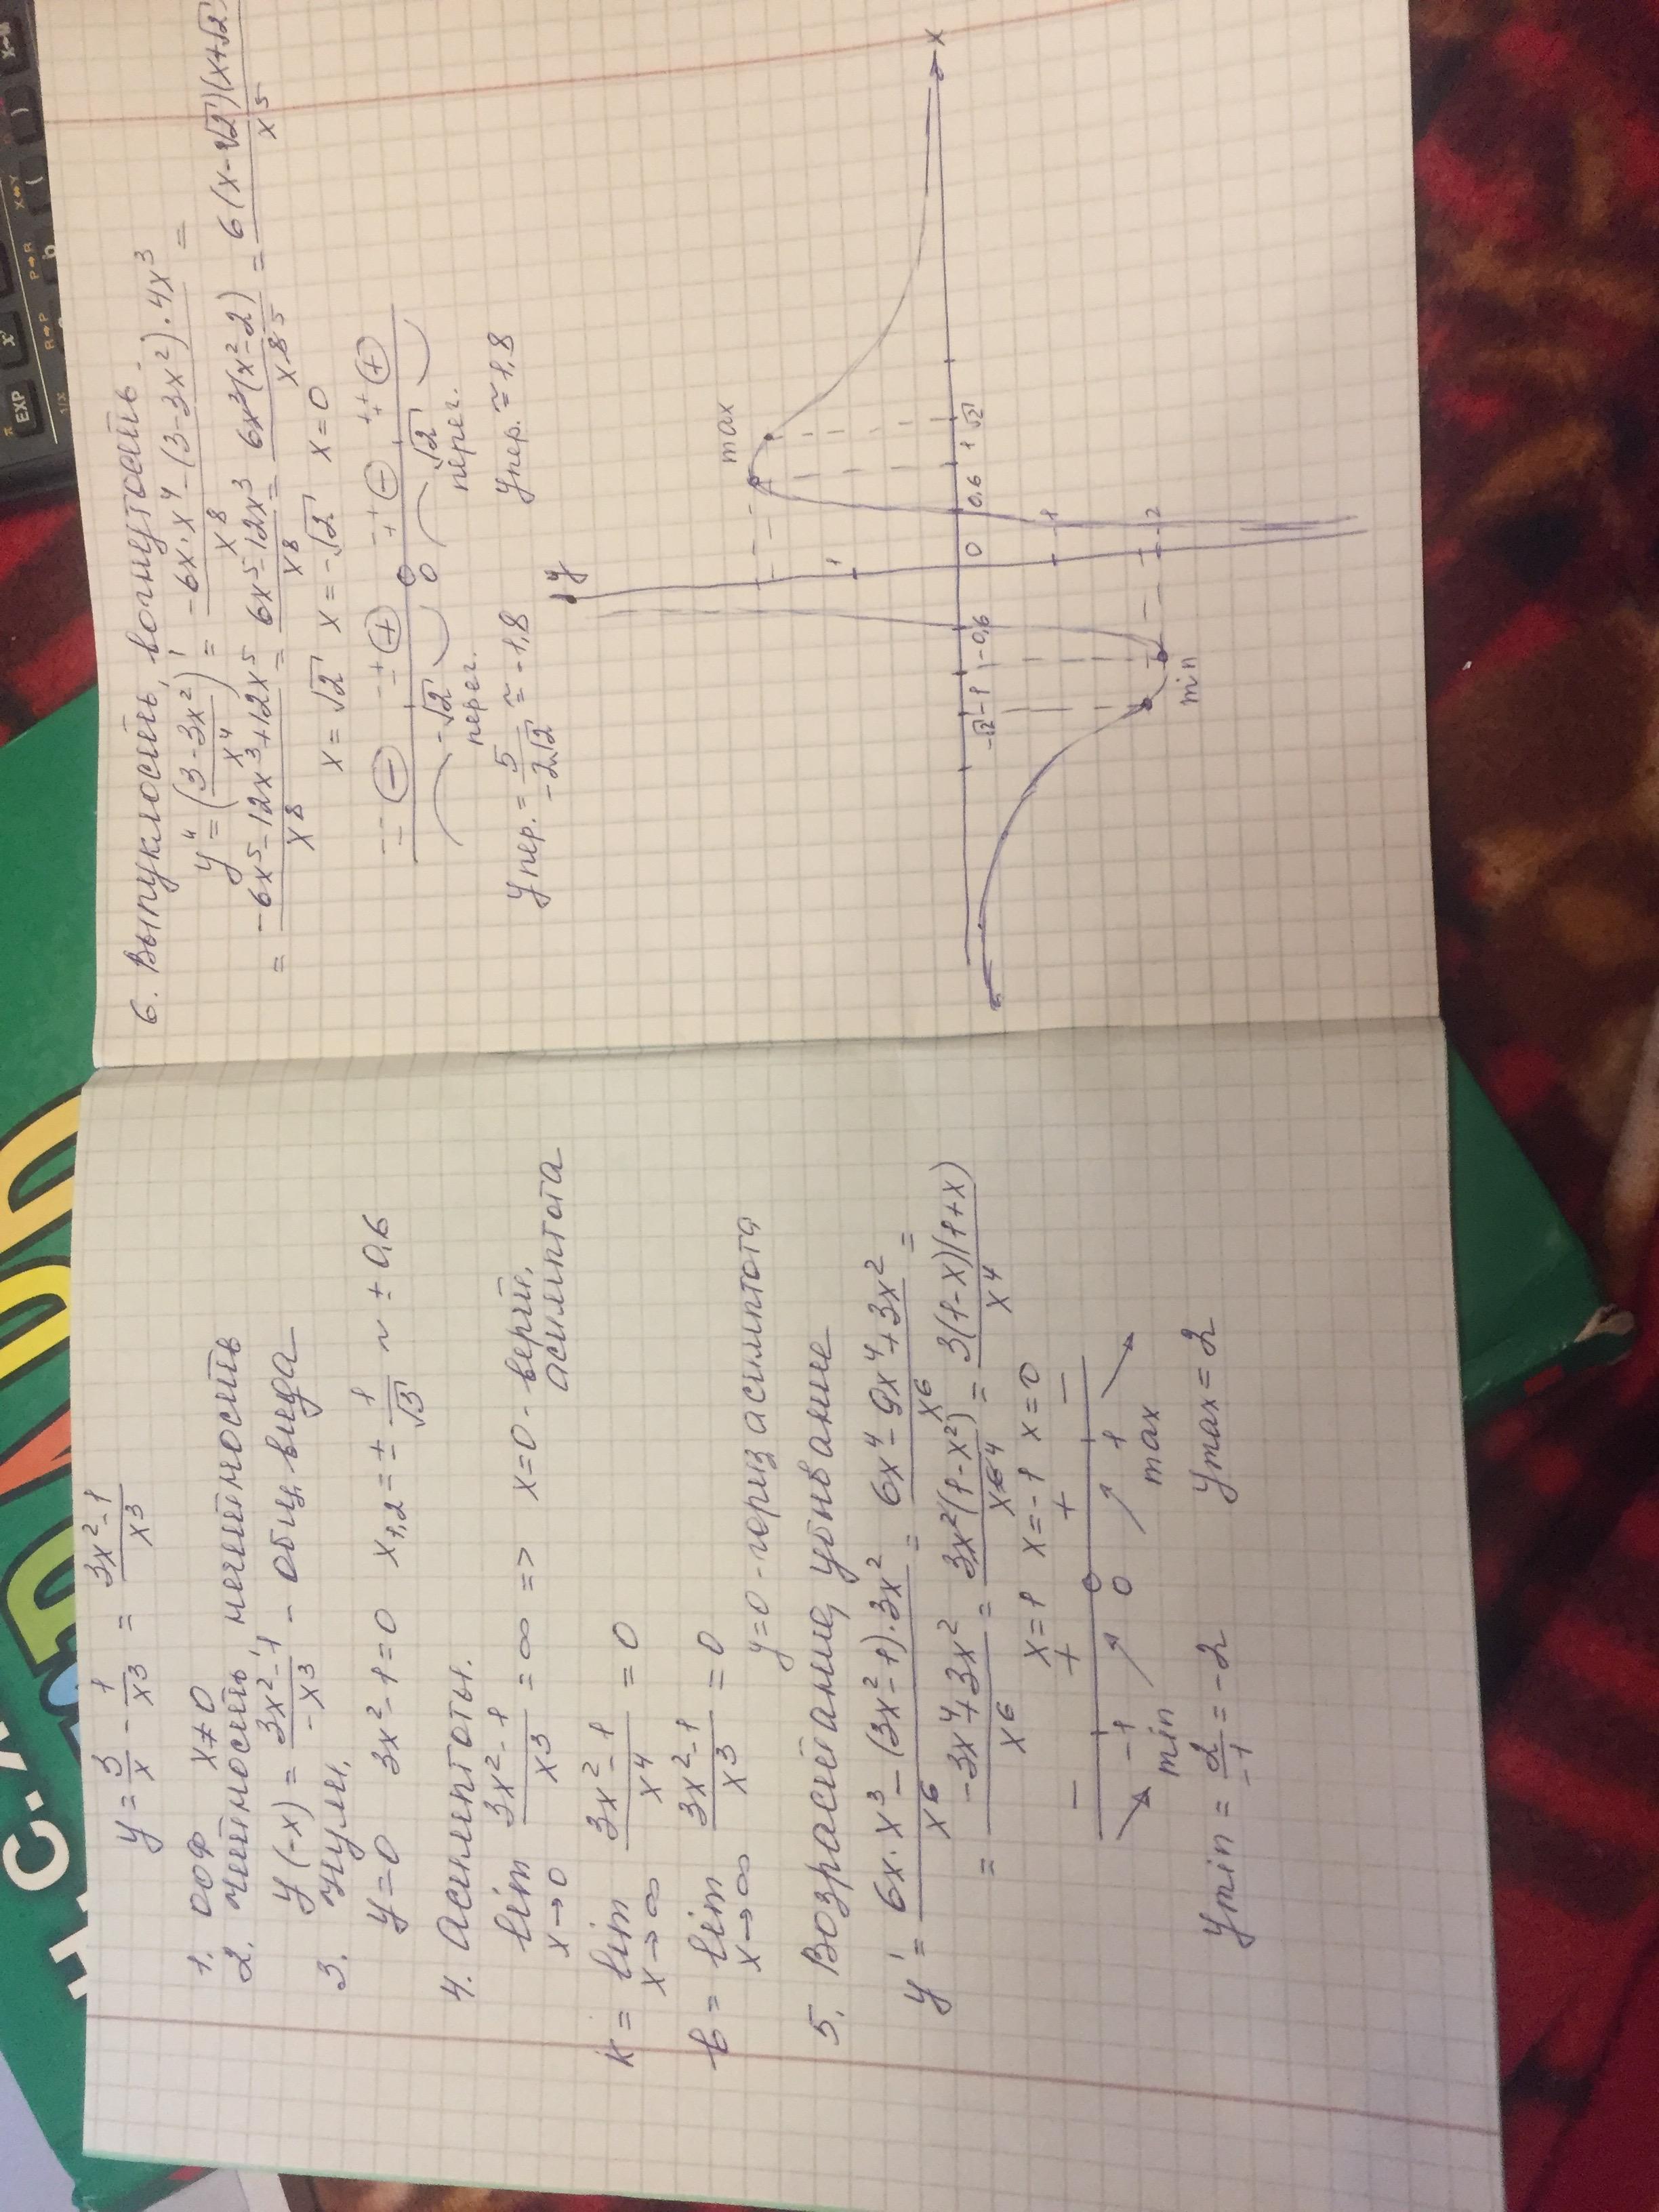 y = 3/x - 1/x³ = (3x²-1)/x³
1. ООФ x≠0
2. Чётность, нечётность
y(-x) = (3x²-1)/(-x³) - общ. вида
3. Нули.
y=0 3x²-1=0 x₁,₂ = ± 1/√3 ~ ± 0,6
4. Асимптоты.
lim x→0 (3x²-1)/x³ = ∞ => x=0 - верт. асимптота
k = lim x→∞ (3x²-1)/x⁴ = 0
b = lim x→∞ (3x²-1)/x³ = 0
y=0 - гориз асимптота
5. Возрастание, убывание
y' = (6x·x³-(3x²-1)·3x²)/x⁶ = (6x⁴-9x⁴+3x²)/x⁶ =
= (-3x⁴+3x²)/x⁶ = (3x²(1-x²))/x⁴ = (3(1-x)(1+x))/x⁴
x=1 x=-1 x=0
- + + -
-1 0 1
min max
y min = 2/-1 = -2 y max = 2
6. Выпуклость, вогнутость.
y" = ((3-3x²)/x⁴)' = (-6x·x⁴-(3-3x²)·4x³)/x⁸ =
= (-6x⁵-12x³+12x⁵)/x⁸ = (6x⁵-12x³)/x⁸ = (6x³(x²-2))/x⁸ ⁵ = (6(x-√2)(x+√2))/x⁵
x = √2 x = -√2 x = 0
- + - +
-√2 0 √2
перег. перег.
y пер. = 5/(-2√2) ≈ -1,8 y пер. ≈ 1,8
y
max
1
-√2 -1 -0,6 0 0,6 1 √2 x
1
-2
min
EXP
π
x'
R→P
P→R
b
X↔Y
(
)
1/X
С.